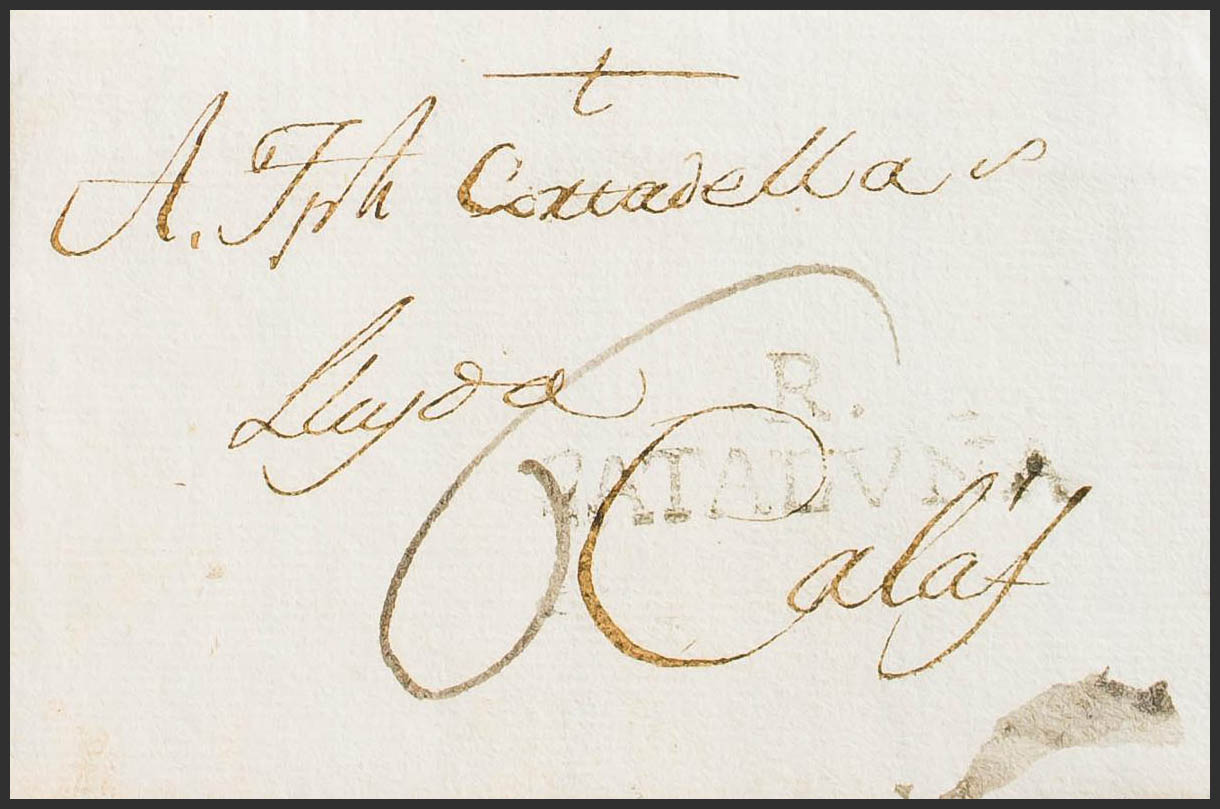 A. Jph Cortadella
Lluyda
6
R.
CATALUÑA
Calaf